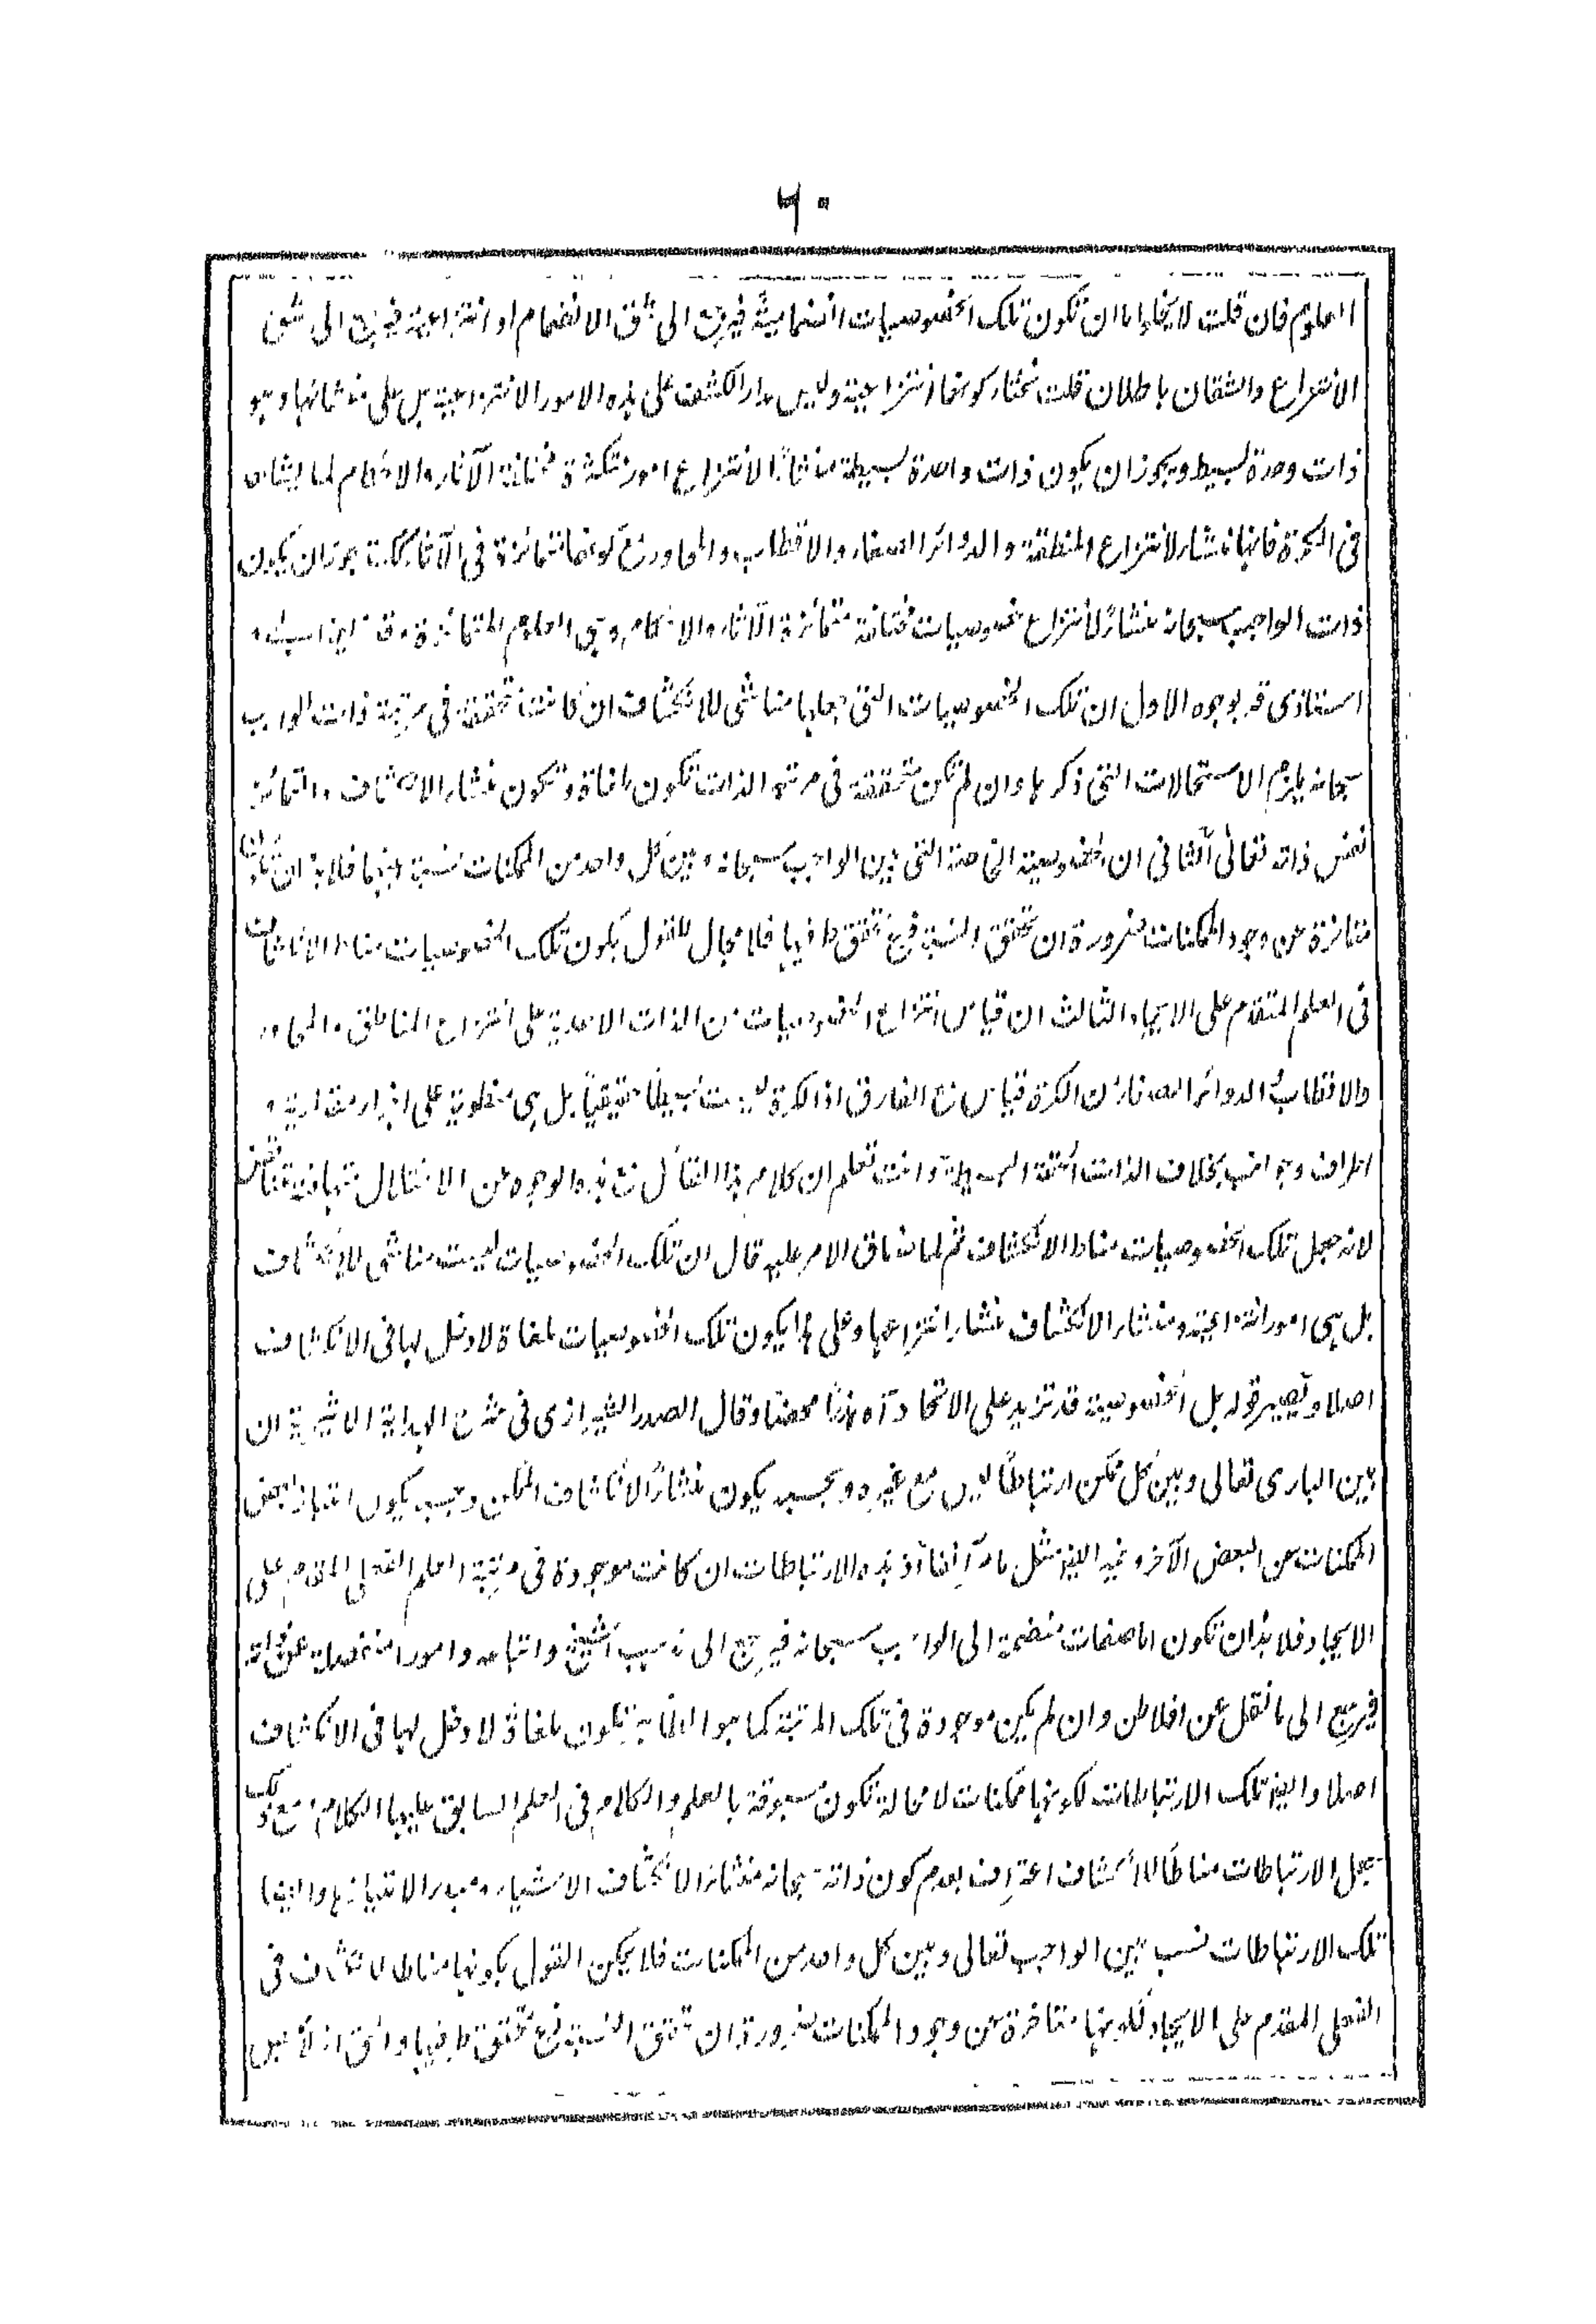 ٦٠
العلوم فان قلت لا يخلو اما ان تكون تلك الخصوصيات انضمامية فيرجع الى شق الانضمام او انتزاعية فيرجع الى شق
الانتزاع والشقان باطلان قلت نختار كونها انتزاعية وليس مدار الكشف على هذه الامور الانتزاعية بل على منشائها وهو
ذات وحدة بسيط ويجوز ان يكون ذات واحدة بسيطة منشأ لانتزاع امور متكثرة مختلفة الآثار والاحكام لما يشاهد
فى الكرة فانها منشأ لانتزاع المنطقة والدوائر الصغار والاقطاب والمحاور مع كونها متمائزة فى الآثار فكذلك يجوز ان يكون
ذات الواجب سبحانه منشأ لانتزاع خصوصيات مختلفة متمائزة الآثار والاحكام وهى العلوم المتمائزة وقد
استاذى قد بوجوه الاول ان تلك الخصوصيات التى جعلها مناشى للانكشاف ان كانت متحققة فى مرتبة ذات الواجب
سبحانه يلزم الاستحالات التى ذكرها وان لم تكن متحققة فى مرتبة الذات تكون ملغاة وتكون منشأ الانكشاف والتمائز
نفس ذاته تعالى الثانى ان الخصوصية الخاصة التى بين الواجب سبحانه وبين كل واحد من الممكنات نسبة بينهما فلا بد ان تكون
متاخرة عن وجود الممكنات ضرورة ان تحقق النسبة فرع تحقق طرفيها فلا مجال للقول بكون تلك الخصوصيات مناط الانكشاف
فى العلم المتقدم على الايجاد الثالث ان قياس انتزاع الخصوصيات من الذات الاحدية على انتزاع المناطق والمحاور
والاقطاب والدوائر الصغار من الكرة قياس مع الفارق اذ الكرة ليست بسيطا حقيقيا بل هى منطوية على اجزاء مقدارية و
اطراف وجوانب بخلاف الذات الحقة البسيطة وانت تعلم ان كلام هذا القائل مع هذه الوجوه من الاختلال متهافت متناقض
لانه جعل تلك الخصوصيات مناط الانكشاف ثم لما ضاق الامر عليه قال ان تلك الخصوصيات ليست مناشى للانكشاف
بل هى امور انتزاعية ومنشأ الانكشاف منشأ انتزاعها وعلى هذا يكون تلك الخصوصيات ملغاة لا دخل لها فى الانكشاف
اصلا ويصير قوله بل الخصوصية قد تزيد على الاتحاد آه هذرا محضا وقال الصدر الشيرازى فى شرح الهداية الاثيرية ان
بين البارى تعالى وبين كل ممكن ارتباطا ليس مع غيره وبحسبه يكون منشأ لانكشاف الممكن وبحسبه يكون امتياز بعض
الممكنات عن البعض الآخر وفيه ايضا مثل ما مر آنفا اذ هذه الارتباطات ان كانت موجودة فى مرتبة العلم الفعلى المقدم على
الايجاد فلا بد ان تكون اما صفات منضمة الى الواجب سبحانه فيرجع الى مذهب الشيخ واتباعه و امورا منفصلة عن ذاته
فيرجع الى ما نقل عن افلاطن وان لم يكن موجودة فى تلك المرتبة كما هو الظاهر تكون ملغاة لا دخل لها فى الانكشاف
اصلا وايضا تلك الارتباطات لكونها ممكنات لا محالة تكون مسبوقة بالعلم والكلام فى العلم السابق عليها الكلام مع ذلك
جعل الارتباطات مناطا للانكشاف اعتراف بعدم كون ذاته سبحانه منشأ لانكشاف الاشياء ومبدء الامتيازها وايضا
تلك الارتباطات نسب بين الواجب تعالى وبين كل واحد من الممكنات فلا يمكن القول بكونها مناطا لانكشاف فى
الفعلى المقدم على الايجاد لكونها متاخرة عن وجود الممكنات ضرورة ان تحقق النسبة فرع تحقق طرفيها والحق ان